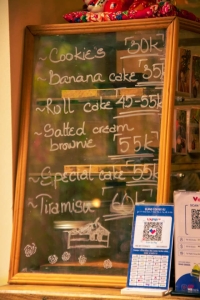 ~ Cookies 30k
~ Banana cake 35k
~ Roll cake 45-55k
~ Salted cream
brownie 55k
~ Special cake 55k
~ Tiramisu